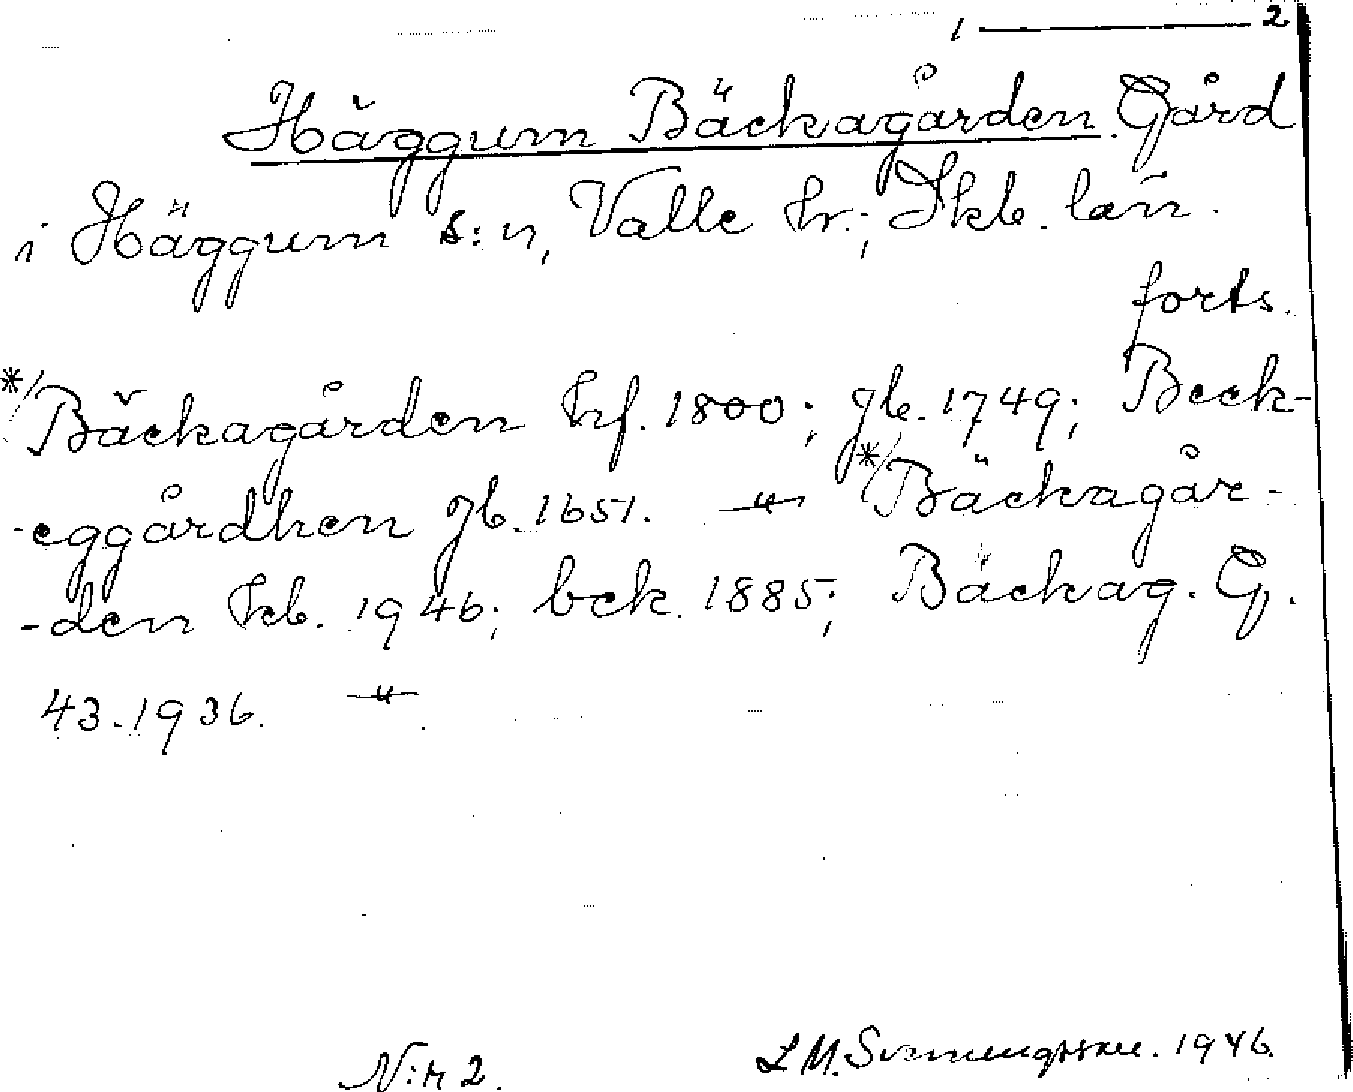 1 ——— 2
Häggum Bäckagården. Gård
i Häggum s:n, Valle hr.; Skb. län.
forts.
*/ Bäckagården hf. 1800; jb. 1749; Beck-
-eggårdhen jb. 1651. —"— */ Bäckagår-
-den kb. 1946; bek. 1885; Bäckag. G.
43. 1936. —"—.
N:r 2. L M. 1946